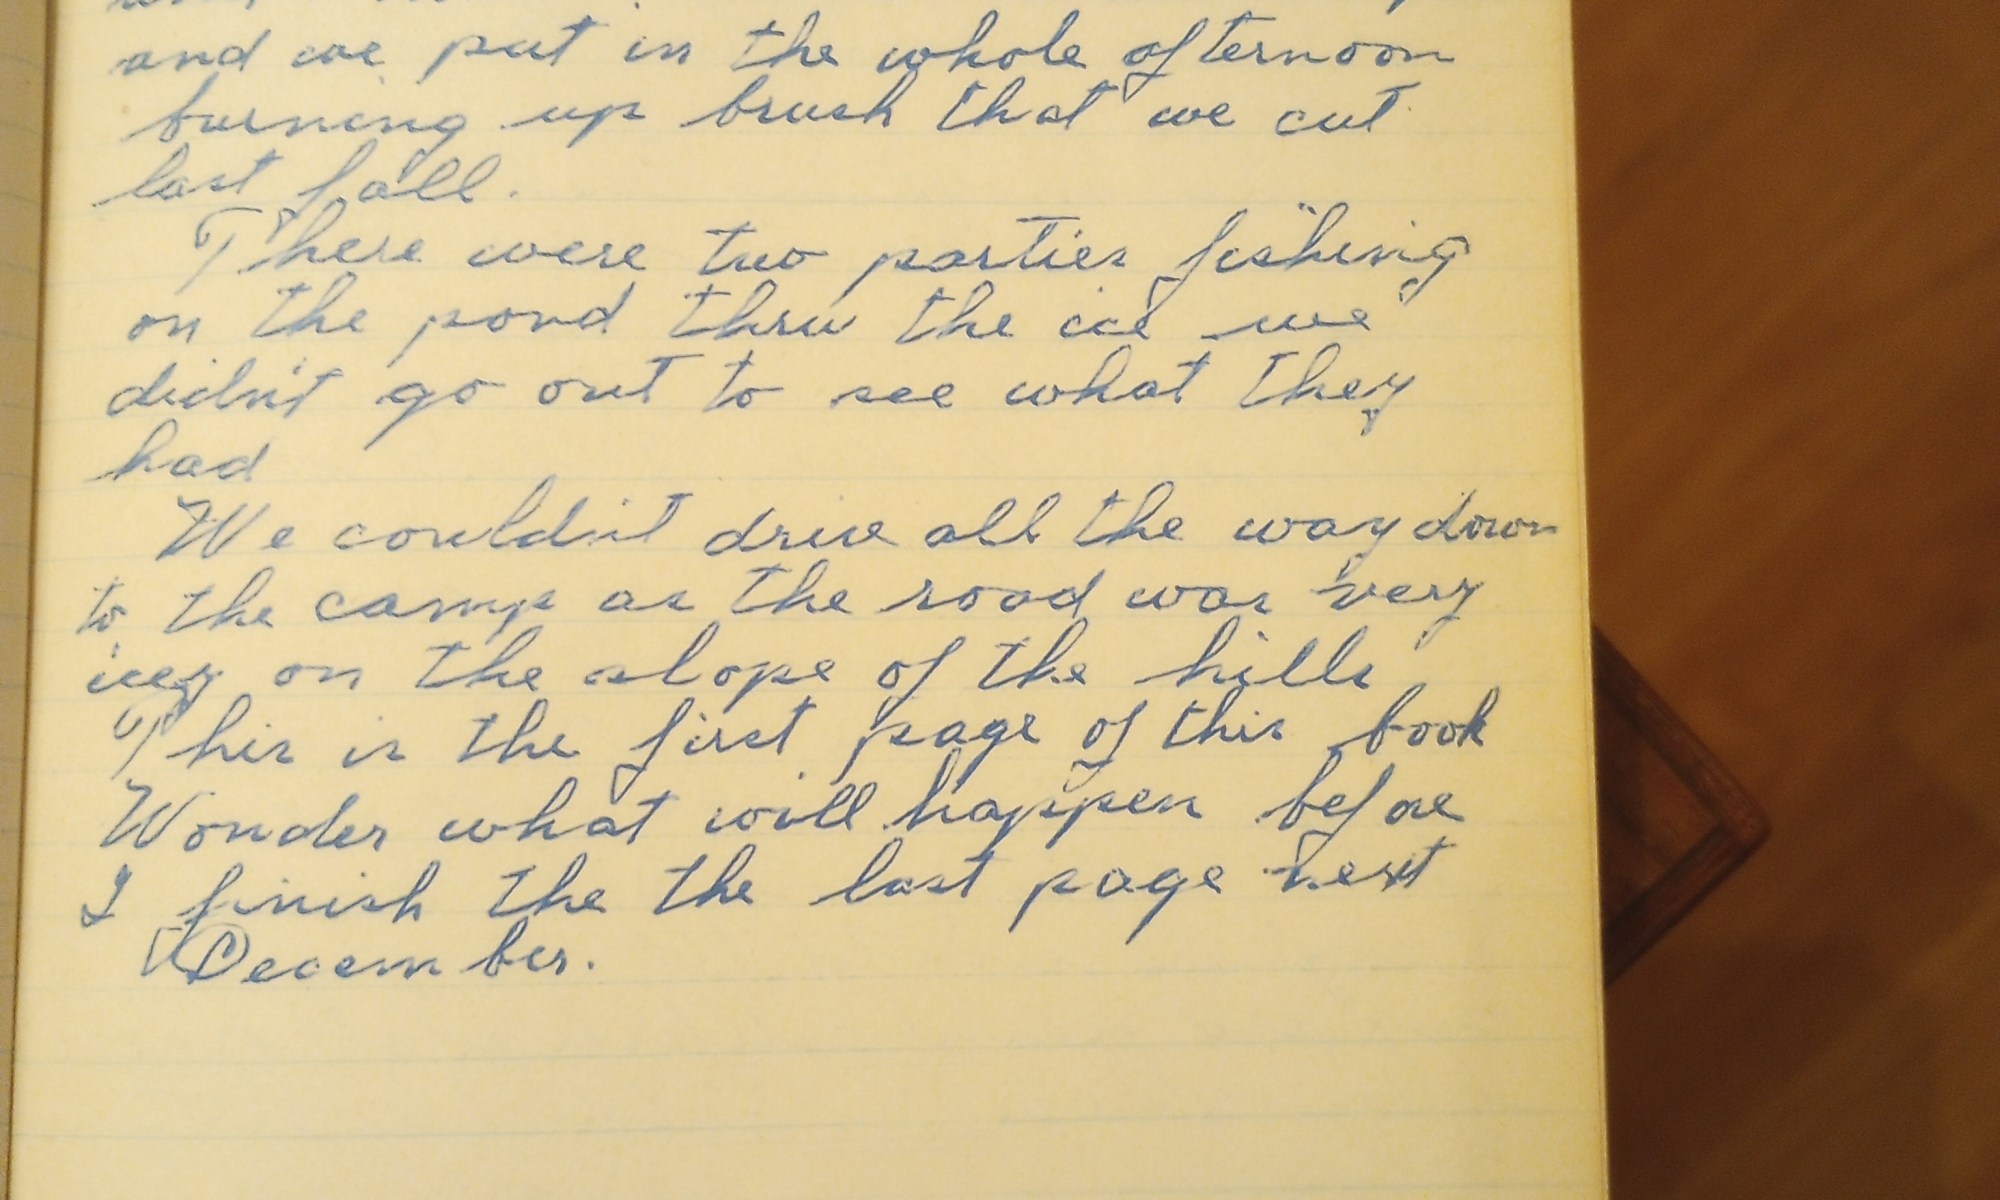 and we put in the whole afternoon
burning up brush that we cut
last fall.
There were two parties fishing
on the pond thru the ice we
didn't go out to see what they
had
We couldn't drive all the way down
to the camp as the road was very
icey on the slope of the hills
This is the first page of this book
Wonder what will happen before
I finish the the last page next
December.